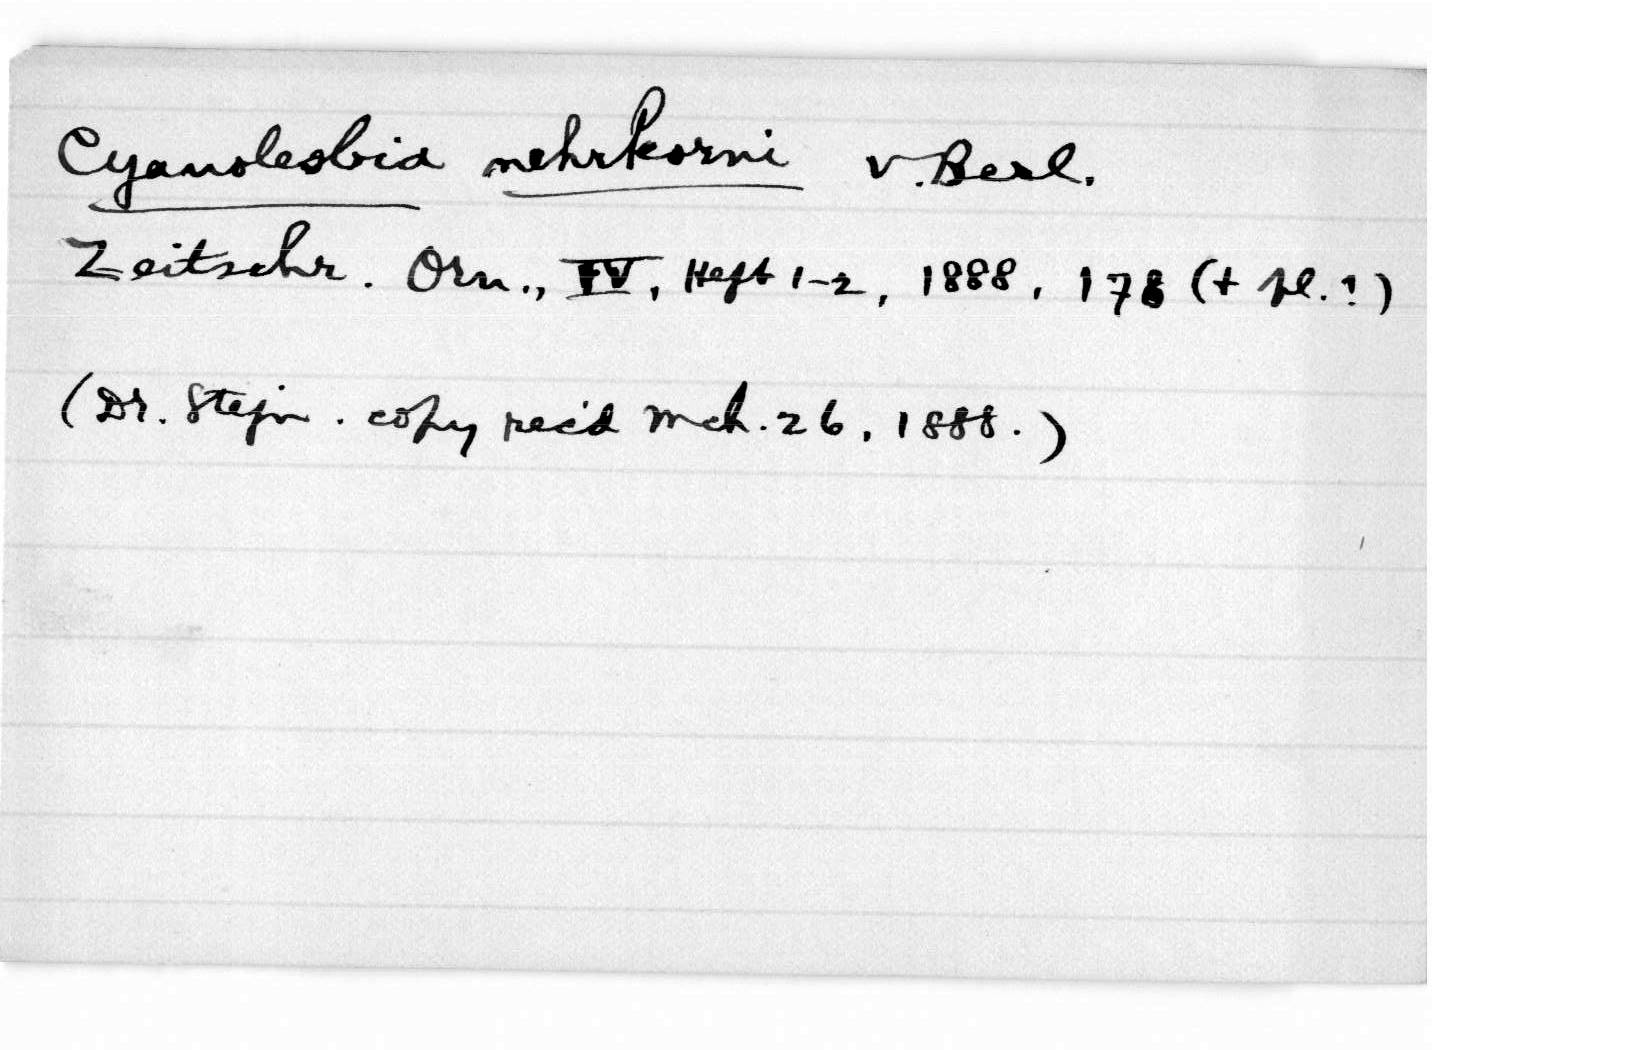 Cyanolesbia nehrkorni v. Berl.
Zeitschr. Orn., IV, Heft 1-2, 1888, 178 (+ pl.?)
(Dr. Stejn. copy rec'd Mch. 26, 1888.)